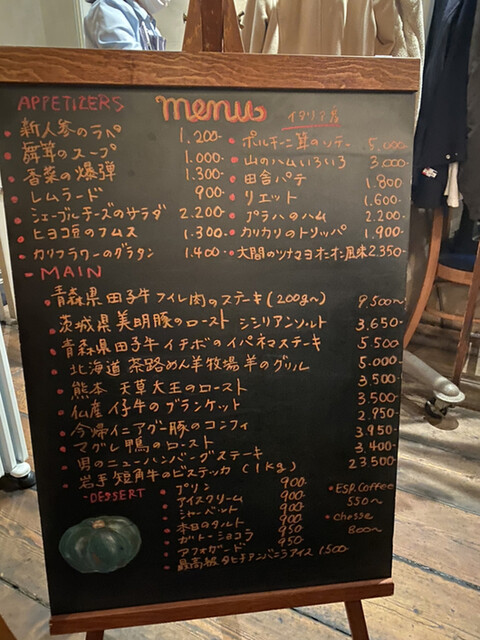 APPETIZERS
menu
イタリア産
新人参のラペ 1.200-
舞茸のスープ 1.000-
香菜の爆弾 1.300-
レムラード 900-
シェーブルチーズのサラダ 2.200-
ヒヨコ豆のフムス 1.300-
カリフラワーのグラタン 1.400-
ポルチーニ茸のソテー 5.000-
山のハムいろいろ 3.000-
田舎パテ 1.800-
リエット 1.600-
プラハのハム 2.200-
カリカリのトリッパ 1.900-
大間のツナマヨオーオー風味 2.350-
- MAIN
青森県 田子牛フィレ肉のステーキ(200g〜) 9.500〜
茨城県 美明豚のロースト シシリアンソルト 3.650-
青森県 田子牛イチボのイパネマステーキ 5.500
北海道 茶路めん羊牧場 羊のグリル 5.000-
熊本 天草大王のロースト 3.500
仔牛のブランケット 3.500-
今帰仁アグー豚のコンフィ 2.950-
マグレ鴨のロースト 3.950-
男のニューハンバーグステーキ 3.400-
岩手短角牛のビステッカ (1kg) 23.500-
- DESSERT
プリン 900-
アイスクリーム 900-
シャーベット 900-
本日のタルト 900
ガトーショコラ 950
アフォガード 950
最高級タヒチアンバニラアイス 1500-
ESP, Coffee
550〜
cheese
800〜